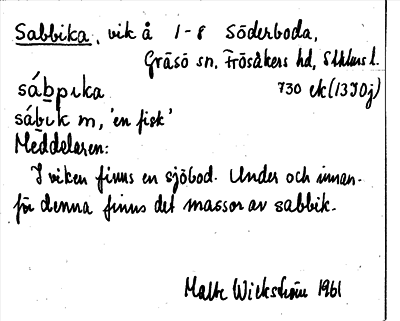 Sabbika, vik å 1-8 Söderboda,
Gräsö sn, Frösåkers hd, Sthlms l.
730 ek (13I0j)
sábpıka
sábık m, 'en fisk'
Meddelaren:
I viken finns en sjöbod. Under och innan-
för denna finns det massor av sabbik.
Malte Wickström 1961